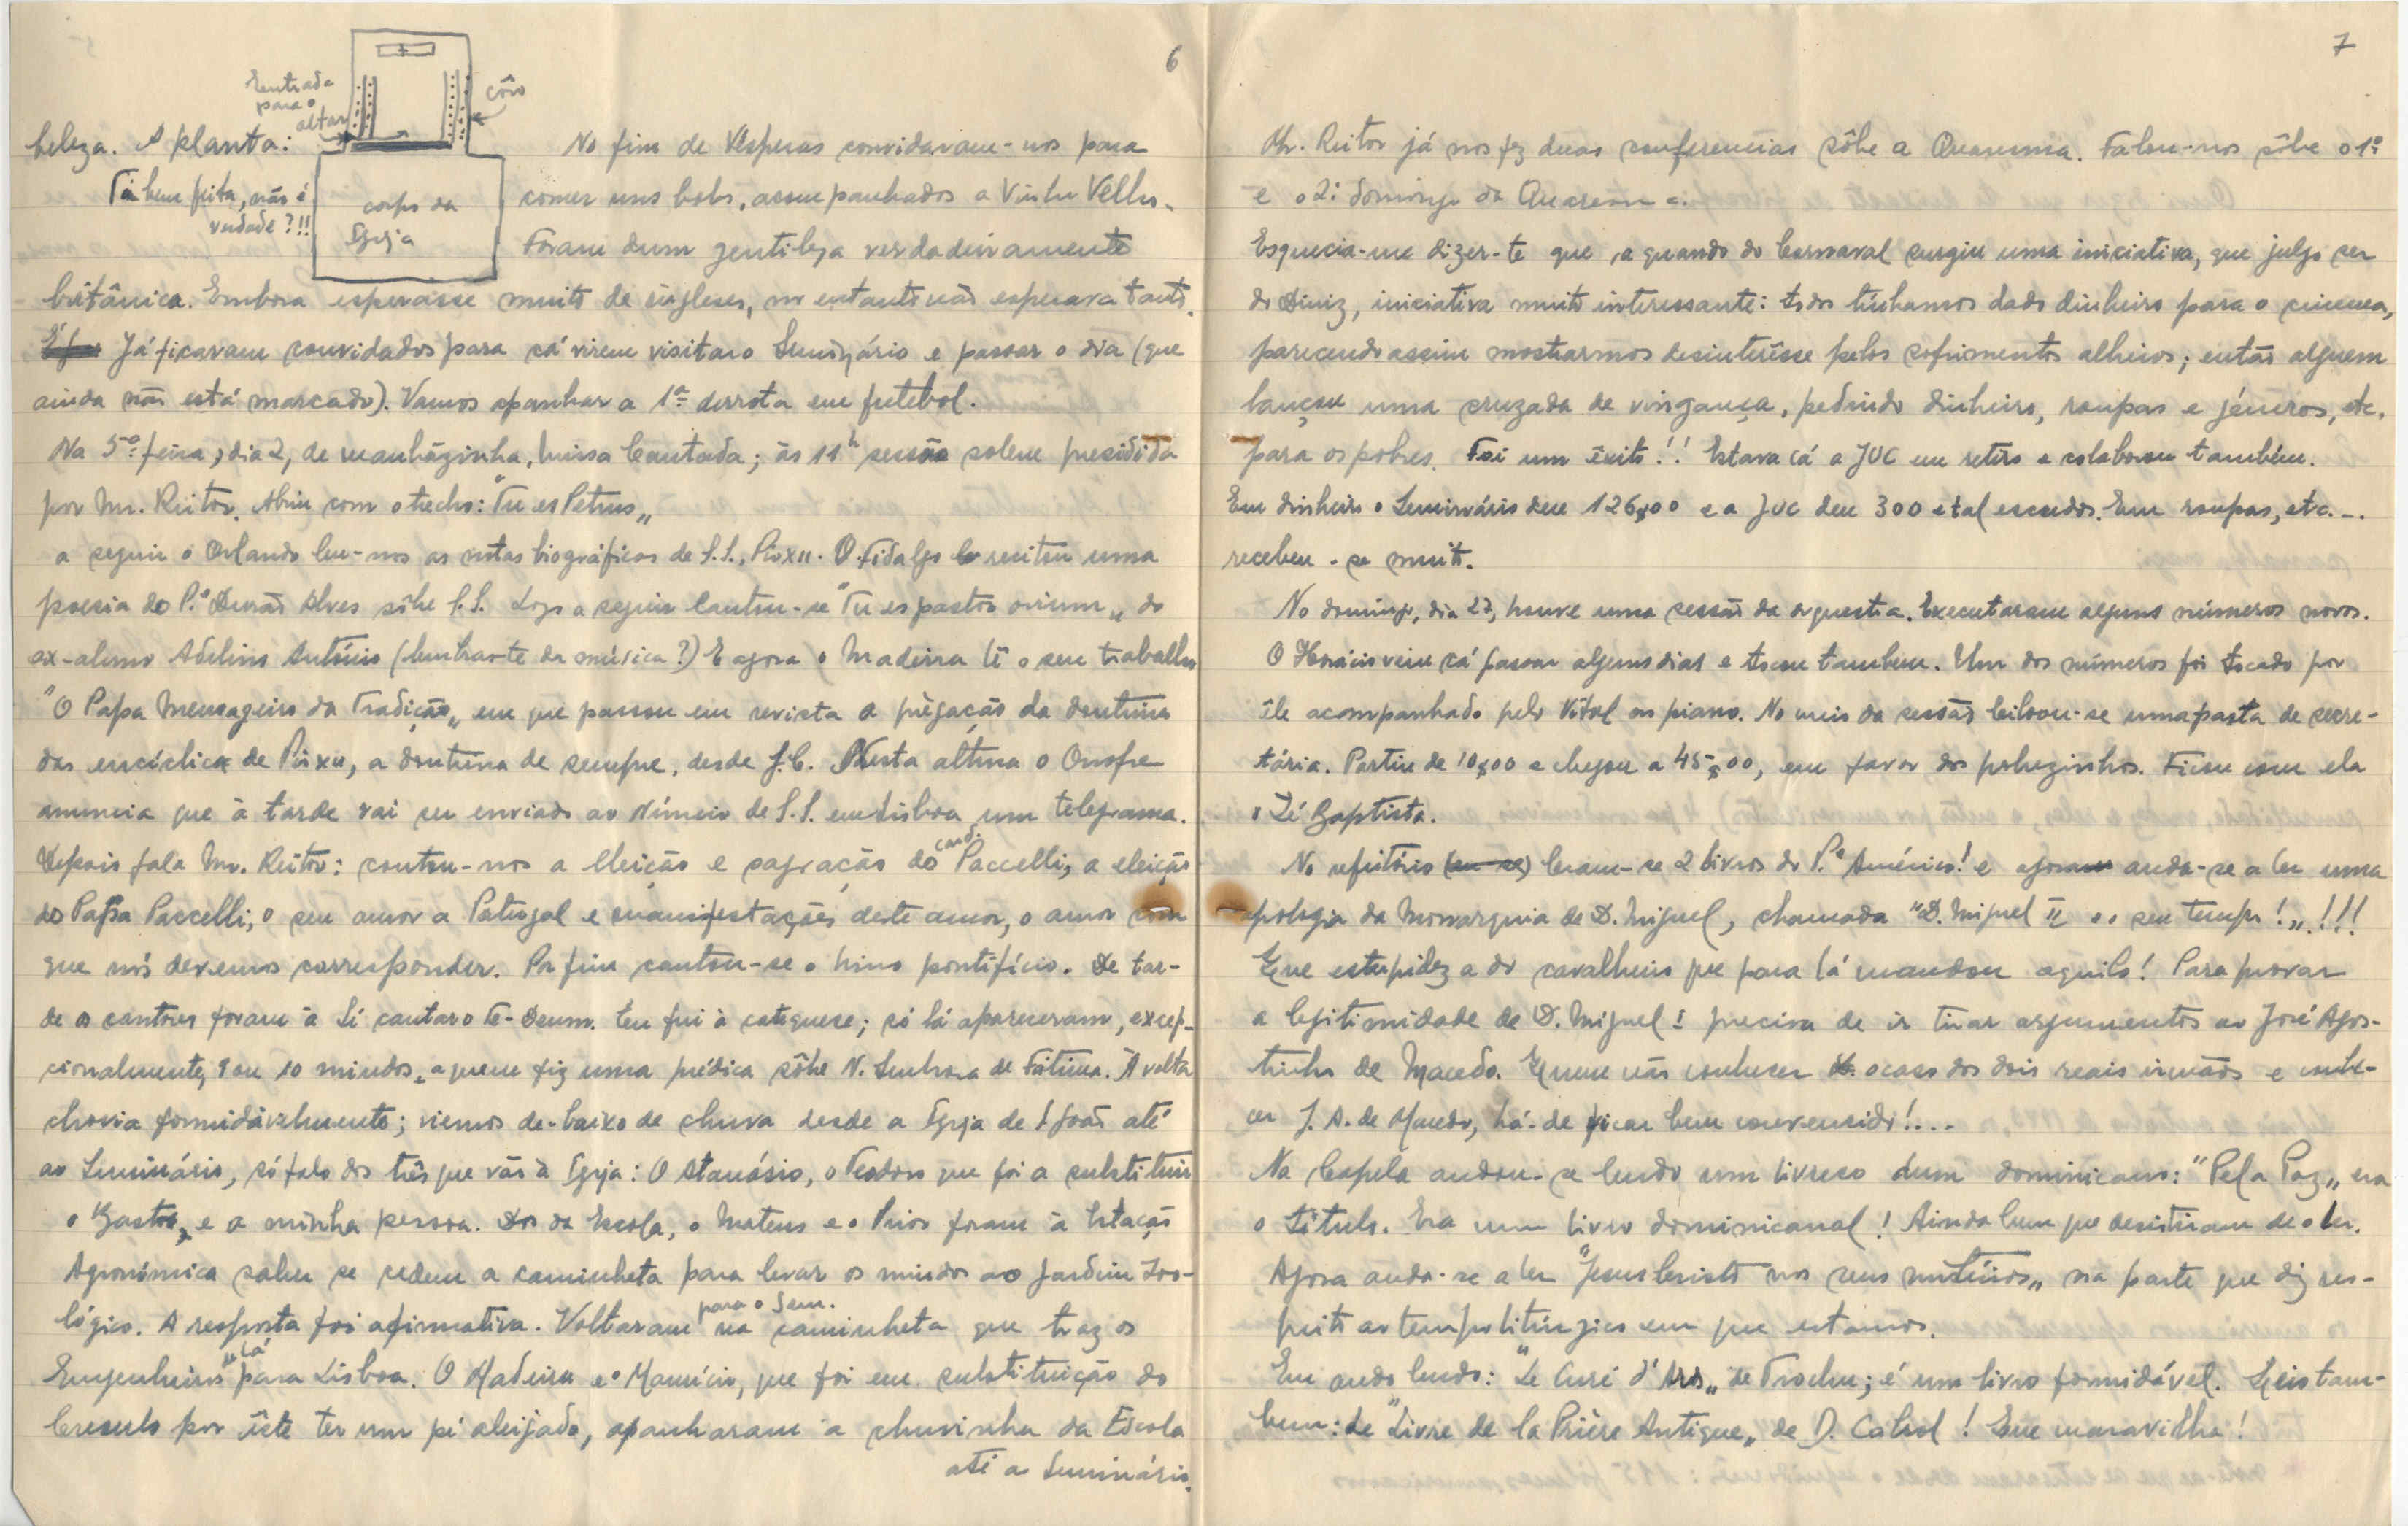 6
Entrada
para o
altar
côro
beleza. A planta:
Tá bem feita, não é
verdade?!!
corpo da
Igreja
No fim de Vésperas convidaram-nos para
comer uns bolos, acompanhados a Vinho Velho.
Foram dum gentileza verdadeiramente
britânica. Embora esperasse muito de ingleses, no entanto não esperava tanto.
Já ficaram convidados para cá virem visitar o Seminário e passar o dia (que
ainda não está marcado). Vamos apanhar a 1ª derrota em futebol.
Na 5ª feira, dia 2, de manhãzinha, missa Cantada; às 11h sessão solene presidida
por Mr. Reitor. Abriu com o trecho: "Tu es Petrus"
a seguir o Orlando leu-nos as notas biográficas de S.S., Pio XII. O Fidalgo recitou uma
poesia do P.e Durão Alves sôbre S.S. Logo a seguir Cantou-se "Tu es pastor ovium" do
ex-aluno Adelino António (lembras-te da música?) E agora o Madeira lê o seu trabalho
"O Papa Mensageiro da Tradição" em que passou em revista a prègação da doutrina
das encíclicas de Pio XII, a doutrina de sempre, desde J.C. Nesta altura o Onofre
anuncia que à tarde vai ser enviado ao Núncio de S.S. em Lisboa um telegrama.
Depois fala Mr. Reitor: contou-nos a eleição e sagração do card. Paccelli, a eleição
do Papa Paccelli, o seu amor a Portugal e manifestações deste amor, o amor com
que nós devemos corresponder. Por fim cantou-se o hino pontifício. De tar-
de os cantores foram à Sé cantar o Te-Deum. Eu fui à catequese; só lá apareceram, excep-
cionalmente, 9 ou 10 miudos, a quem fiz uma prédica sôbre N. Senhora de Fátima. À volta
chovia formidávelmente; viemos de-baixo de chuva desde a Igreja de S. João até
ao Seminário, só falo dos três que vão à Igreja: O Atanásio, o Teodoro que foi a substituir
o Gastão, e a minha pessoa. Dos da Escola, o Mateus e o Prior foram à Estação
Agronómica saber se cedem a caminheta para levar os miudos ao Jardim Zoo-
lógico. A resposta foi afirmativa. Voltaram para o Sem. na caminheta que traz os
Engenheiros de lá para Lisboa. O Madeira e o Maurício, que foi em substituição do
Cresulo por êste ter um pé aleijado, apanharam a chuvinha da Escola
até ao Seminário.
7
Mr. Reitor já nos fez duas conferencias sôbre a Quaresma. Falou-nos sôbre o 1º
e o 2º domingo da Quaresma.
Esquecia-me dizer-te que, a quando do Carnaval surgiu uma iniciativa, que julgo ser
do Diniz, iniciativa muito interessante: todos tínhamos dado dinheiro para o cinema,
parecendo assim mostrarmos desinterêsse pelos sofrimentos alheios; então alguem
lançou uma cruzada de vingança, pedindo dinheiro, roupas e géneros, etc.
para os pobres. Foi um êxito!! Estava cá a JUC em retiro e colaborou também.
Em dinheiro o Seminário deu 126$00 e a JUC deu 300 e tal escudos. Em roupas, etc...
recebeu-se muito.
No domingo, dia 27, houve uma sessão da orquestra. Executaram alguns números novos.
O Horácio veiu cá passar alguns dias e tocou tambem. Um dos números foi tocado por
êle acompanhado pelo Vital ao piano. No meio da sessão leiloou-se uma pasta de secre-
tária. Partiu de 10$00 e chegou a 45$00, em favor dos pobrezinhos. Ficou com ela
o Zé Baptista.
No refeitório leram-se 2 livros do P.e Américo! e agora anda-se a ler uma
apologia da Monarquia de D. Miguel, chamada "D. Miguel II e o seu tempo!"!!!
Que estupidez a do cavalheiro que para lá mandou aquilo! Para provar
a legitimidade de D. Miguel I precisa de ir tirar argumentos ao José Agos-
tinho de Macedo. Quem não conhecer o caso dos dois reais irmãos e conhe-
cer J. A. de Macedo, há-de ficar bem convencido!...
Na Capela andou-se lendo um livreco dum dominicano: "Pela Paz" era
o título. Era um livro dominicanal! Ainda bem que desistiram de o ler.
Agora anda-se a ler "Jesus Cristo nos seus mistérios" na parte que diz res-
peito ao tempo litúrgico em que estamos.
Eu ando lendo: "Le Curé d'Ars" de Trochu; é um livro formidável. Leio tam-
bem: de "Livre de la Prière Antique" de D. Cabrol! Que maravilha!